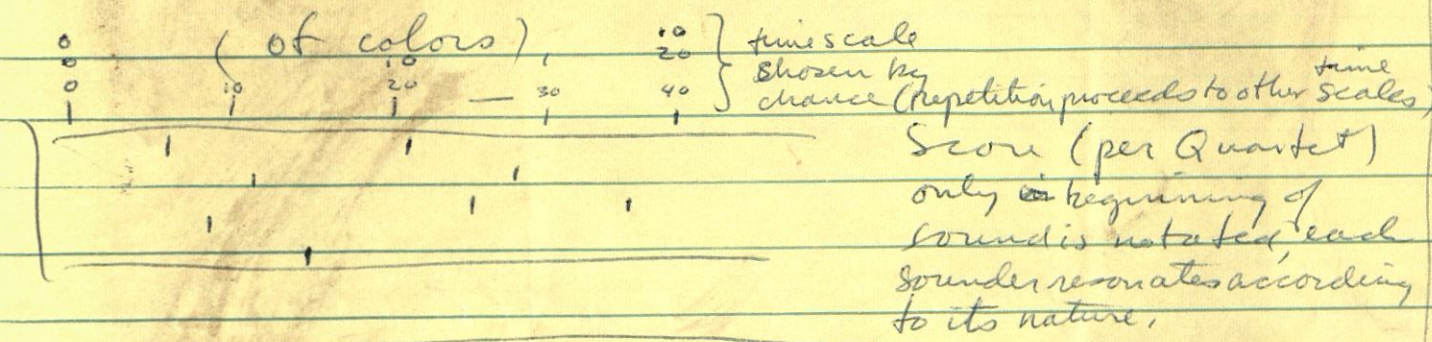 0 ( of colors ), 10 } timescale
0 10 20 chosen by
0 10 20 — 30 40 chance (repetition proceeds to other time scales)
Score (per Quartet)
only beginning of
sound is notated, each
sounder resonates according
to its nature.